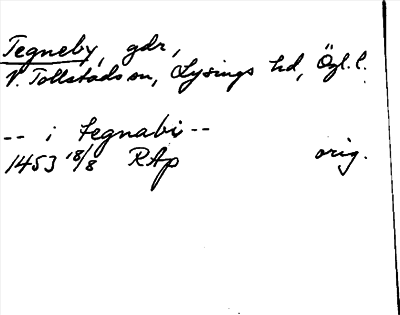 Tegneby, gdr,
V. Tollstads sn, Lysings hd, Ögl.l.
-- i tegnabi --
1453 18/8 RAp orig.